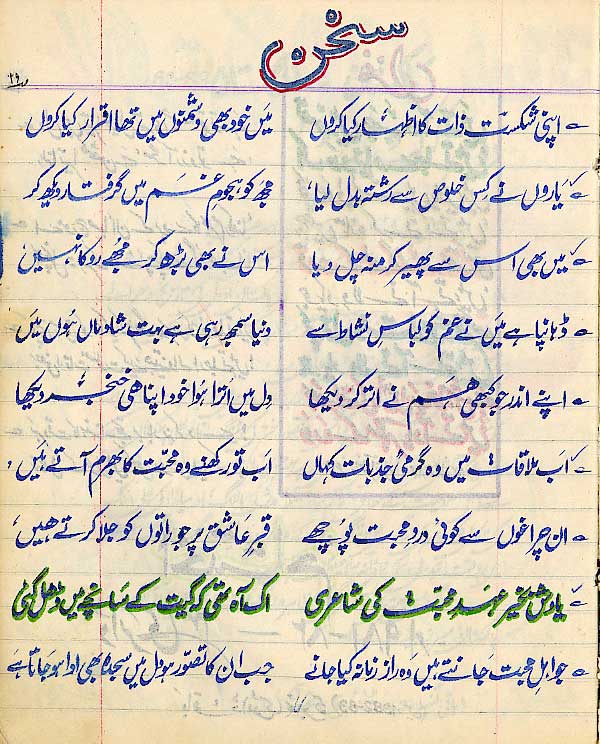 سخن
۲۹
اپنی شکستِ ذات کا اظہار کیا کروں میں خود بھی دشمنوں میں تھا اقرار کیا کروں
یاروں نے کس خلوص سے رشتہ بدل لیا مجھ کو ہجومِ غم میں گرفتار دیکھ کر
میں بھی اس سے پھیر کر منہ چل دیا اس نے بھی بڑھ کر مجھے روکا نہیں
ڈھانپا ہے میں نے غم کو لباسِ نشاط سے دنیا سمجھ رہی ہے بہت شادماں ہوں میں
اپنے اندر جو کبھی ہم نے اتر کر دیکھا دل میں اُترا ہوا خود اپنا ہی خنجر دیکھا
اَب ملاقات میں وہ گرمیٔ جذبات کہاں اَب تو رکھنے وہ محبت کا بھرم آتے ہیں
ان چراغوں سے کوئی دردِ محبت پوچھے قبرِ عاشق پر جو راتوں کو جلا کرتے ہیں
یادش بخیر عہدِ محبت کی شاعری اک آہ تھی کہ گیت کے سانچے میں ڈھل گئی
جو اہلِ محبت جانتے ہیں وہ راز زمانہ کیا جانے جب ان کا تصور ہو دل میں سجدہ بھی ادا ہو جاتا ہے